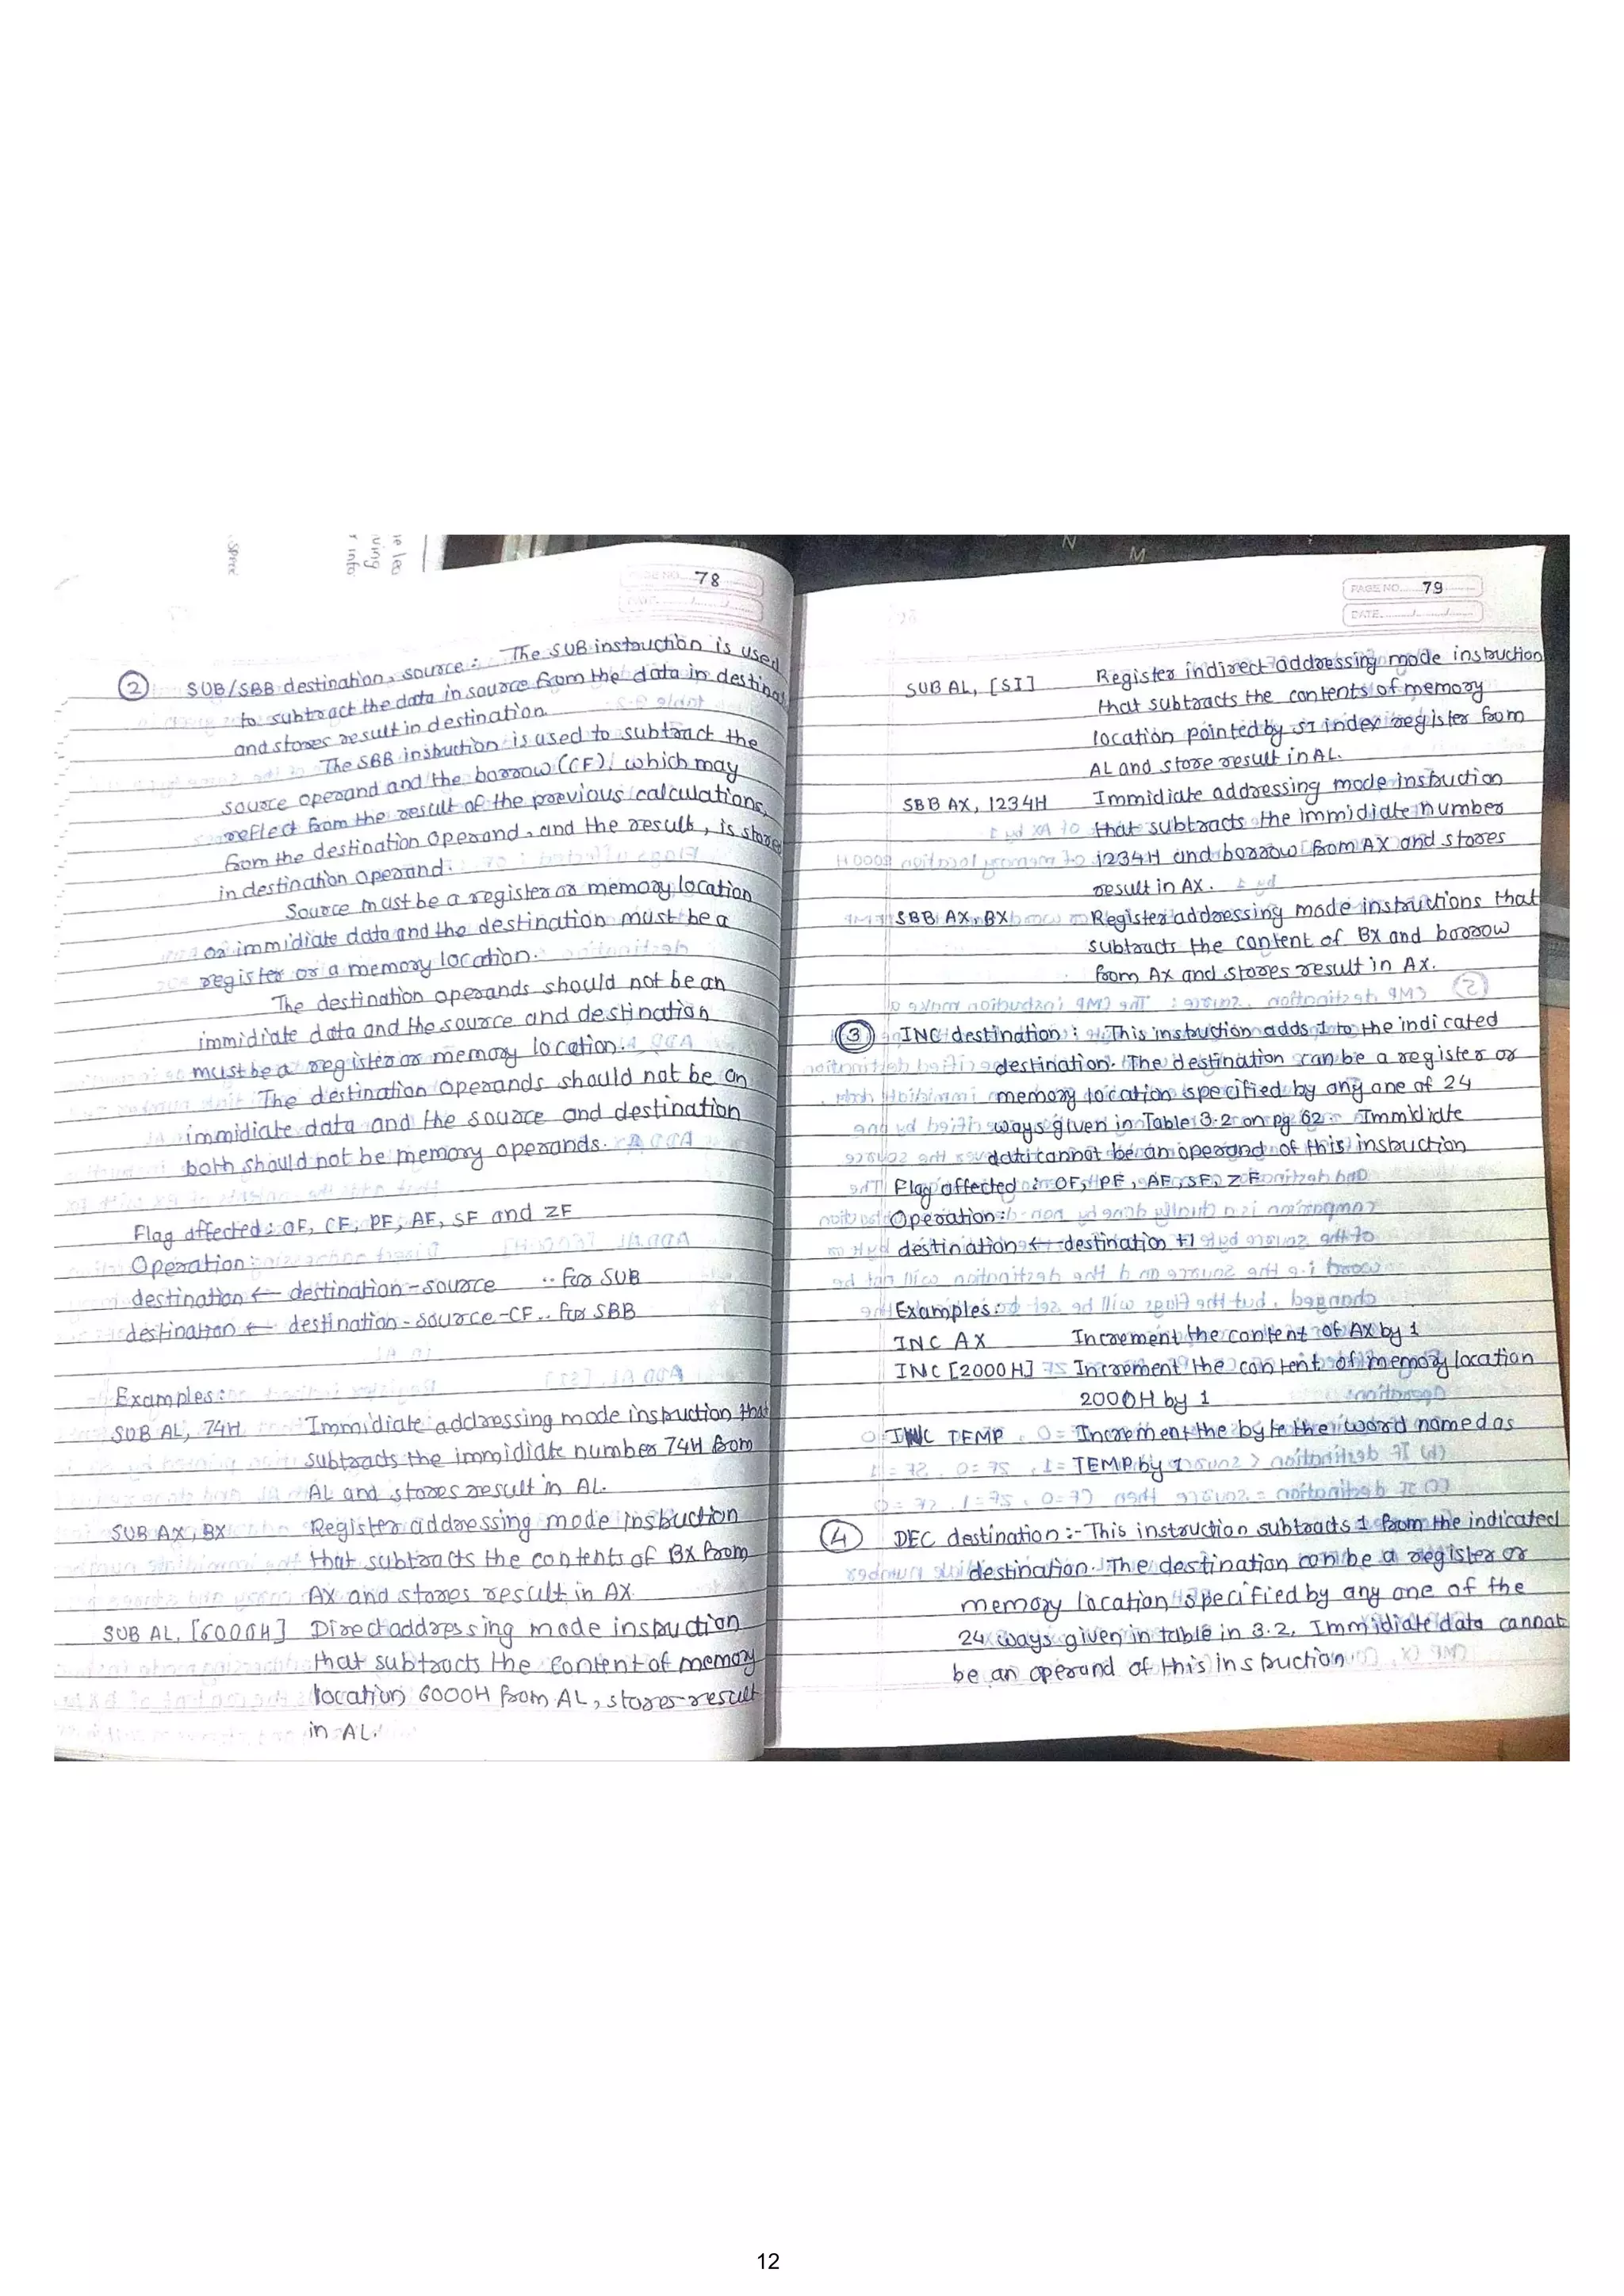 78
② SUB/SBB destination, source : The SUB instruction is used
to subtract the data in source from the data in destina
and stores result in destination.
The SBB instruction is used to subtract the
source operand and the borrow (CF), which may
reflect from the result of the previous calculations,
from the destination operand, and the result, is stored
in destination operand.
Source must be a register or memory location
or immidiate data and the destination must be a
register or a memory location.
The destination operands should not be an
immidiate data and the source and destination
must be a register or memory location.
The destination operands should not be an
immidiate data and the source and destination
both should not be memory operands.
Flag affected : OF, CF, PF, AF, SF and ZF
Operation :
destination ← destination - source .. for SUB
destination ← destination - source - CF .. for SBB
Examples :
SUB AL, 74H Immidiate addressing mode instruction that
subtracts the immidiate number 74H from
AL and stores result in AL.
SUB AX, BX Register addressing mode instruction
that subtracts the contents of BX from
AX and stores result in AX.
SUB AL, [6000H] Direct addressing mode instruction
that subtracts the content of memory
location 6000H from AL, stores result
in AL.
PAGE NO. 79
DATE. / /
SUB AL, [SI] Register indirect addressing mode instruction
that subtracts the contents of memory
location pointed by SI index register from
AL and store result in AL.
SBB AX, 1234H Immidiate addressing mode instruction
that subtracts the immidiate number
1234H and borrow from AX and stores
result in AX.
SBB AX, BX Register addressing mode instructions that
subtracts the content of BX and borrow
from AX and stores result in AX.
③ INC destination : This instruction adds 1 to the indicated
destination. The destination can be a register or
memory location specified by any one of 24
ways given in Table 3.2 on pg 62. Immidiate
data cannot be an operand of this instruction
Flag affected : OF, PF, AF, SF, ZF
Operation :
destination ← destination +1
Examples :
INC AX Increment the content of AX by 1
INC [2000H] Increment the content of memory location
2000H by 1
INC TEMP Increment the byte the word named as
TEMP by 1
④ DEC destination :- This instruction subtracts 1 from the indicated
destination. The destination can be a register or
memory location specified by any one of the
24 ways given in table in 3.2. Immidiate data cannot
be an operand of this instruction
12